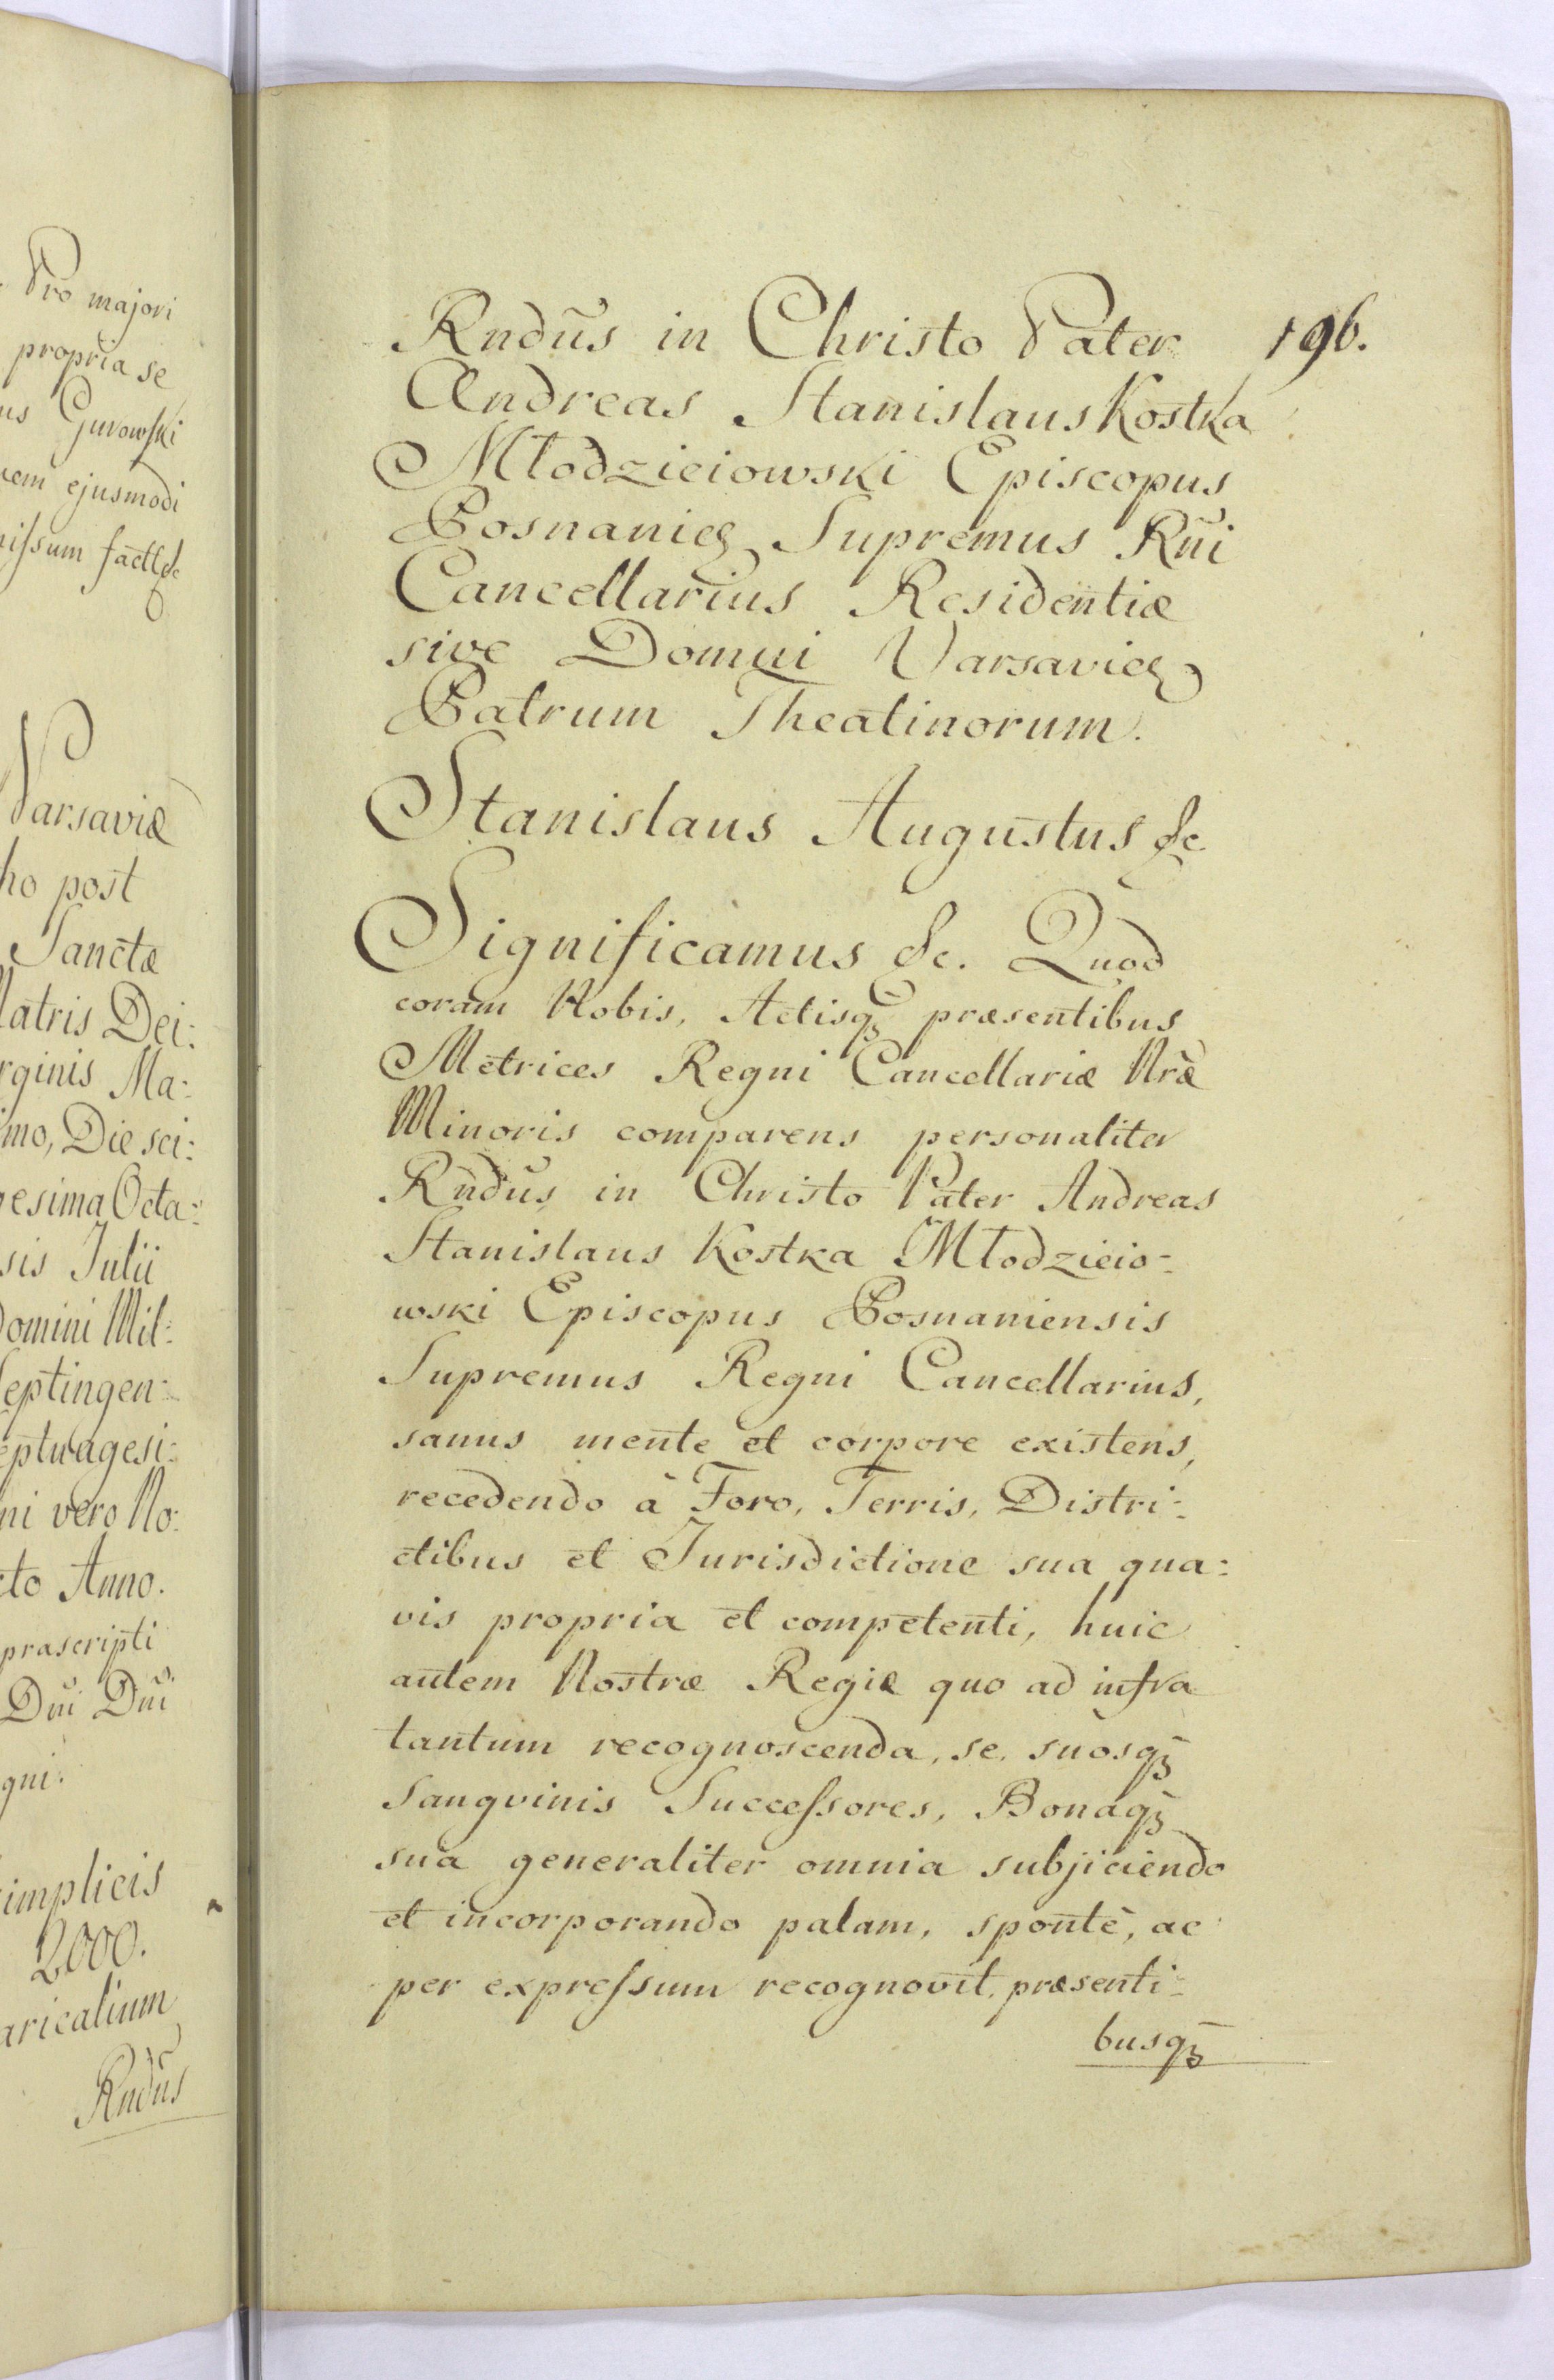 Pro majori
propria se
us Gurowski
nem ejusmodi
nissum factt &c
Varsaviæ
ho post
Sanctæ
Matris Dei:
rginis Ma:
mo, Die sci:
gesima Octa:
sis Julii
Domini Mil:
Septingen:
eptuagesi:
ni vero No:
cto Anno.
præscripti
Dñi Dñi
gni.
implicis
2000.
aricalium
Rndũs
196.
Rndũs in Christo Pater
Andreas Stanislaus Kostka
Młodzieiowski Episcopus
Posnanieñ Supremus Rñi
Cancellarius Residentiæ
sive Domui Varsavieñ
Patrum Theatinorum.
Stanislaus Augustus &c.
Significamus &c. Quod
coram Nobis, Actisqꝫ præsentibus
Metrices Regni Cancellariæ Nræ̃
Minoris comparens personaliter
Rndũs in Christo Pater Andreas
Stanislaus Kostka Młodzieio-
wski Episcopus Posnaniensis
Supremus Regni Cancellarius,
sanus mente et corpore existens,
recedendo à Foro, Terris, Distri:
ctibus et Jurisdictione sua qua:
vis propria et competenti, huic
autem Nostræ Regiæ quo ad infra
tantum recognoscenda, se, suosqꝫ
Sangvinis Successores, Bonaqꝫ
sua generaliter omnia subjiciendo
et incorporando palam, spontè, ac
per expressum recognovit, præsenti-
busqꝫ